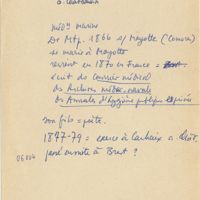 médn marine
Dr Mtp. 1866 s/ Mayotte (Comores)
se marie à Mayotte
revient en 1870 en France =
écrit ds Courrier médical
ds Archives médec. navale
ds Annales d'hygiène publique
son fils = poète.
1877-79 = exerce à
ensuite à Brest ?